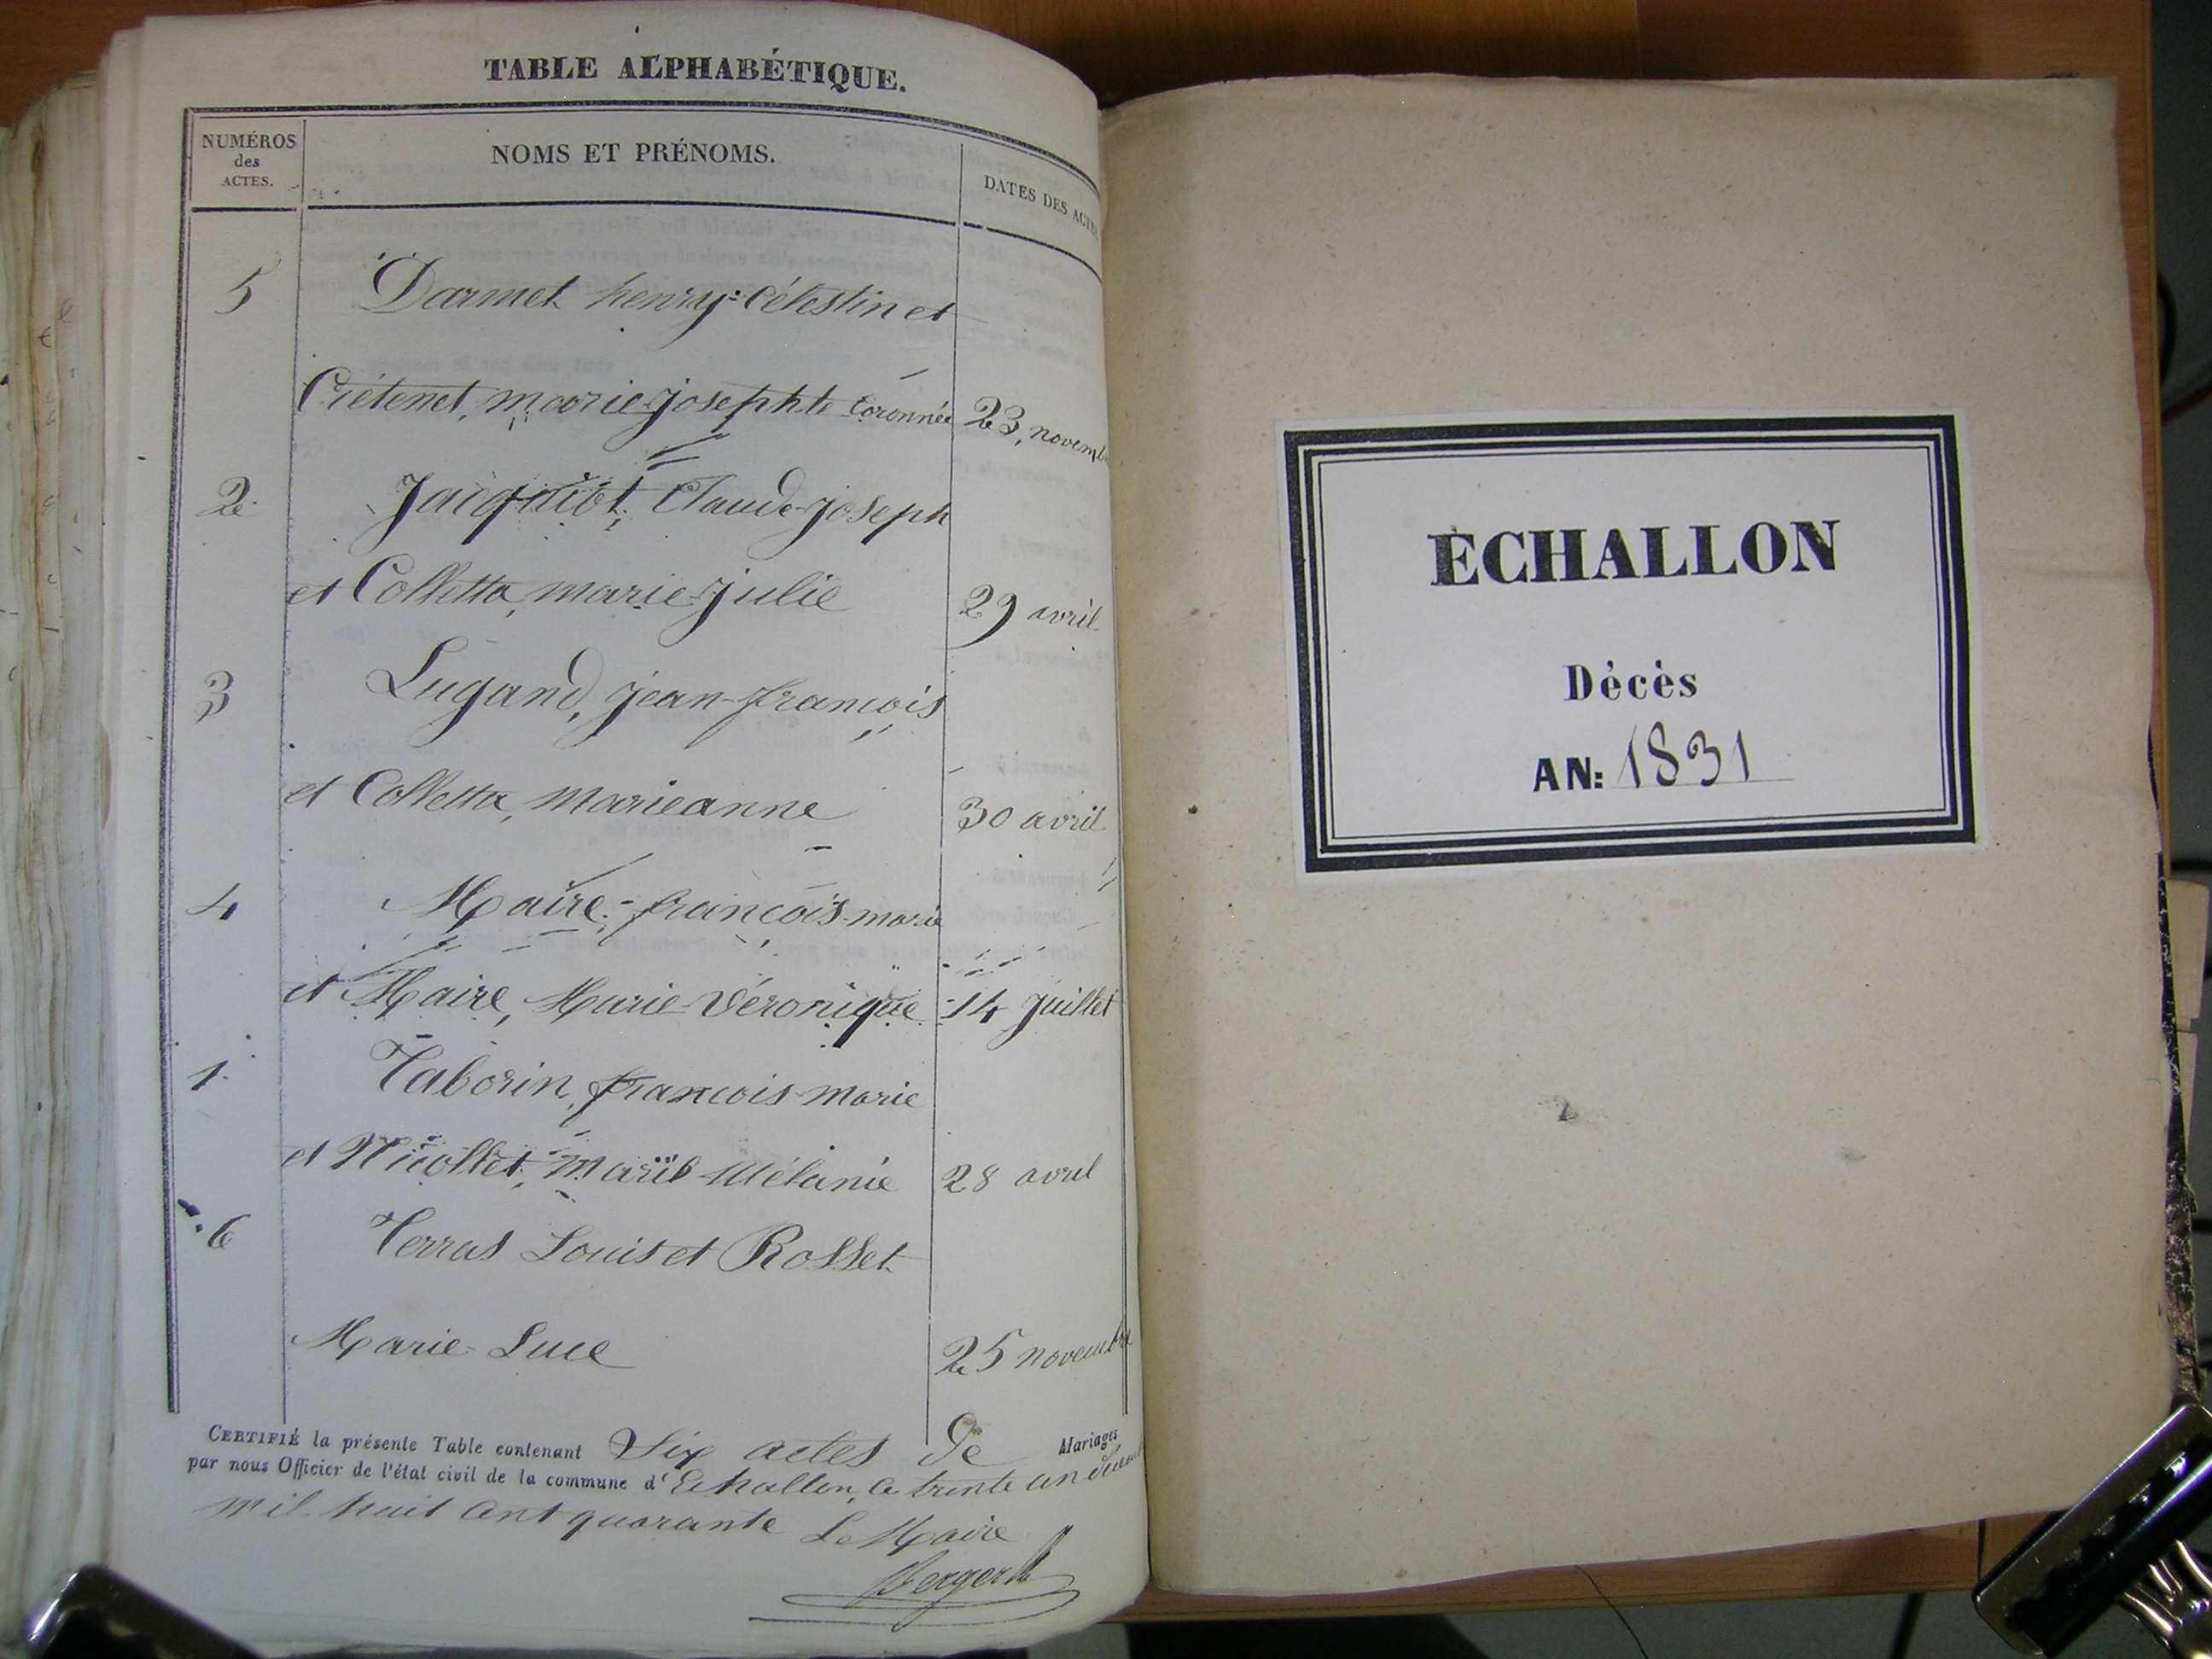 TABLE ALPHABÉTIQUE.
NUMÉROS
des
ACTES.
NOMS ET PRÉNOMS.
DATES DES ACTE
5 Darmet henry-Célestin et
Crétenet, marie-josephte 23, novemb
2 Jacquiot, Claude-joseph
et Colletta, marie-julie 29 avril
3 Lugand, jean-françois
et Colletta, marieanne 30 avril
4 Maire-françois-marie
et Maire, Marie-Véronique 14 juillet
1 Taborin, françois marie
et Nicollet, Marie-Mélanie 28 avril
6 Terras Louis et Rosset
Marie-Luce 25 novembre
CERTIFIÉ la présente Table contenant Six actes de Mariages
par nous Officier de l'état civil de la commune d' Echallon, le trente un
mil huit cent quarante Le Maire
ECHALLON
Décès
AN: 1831